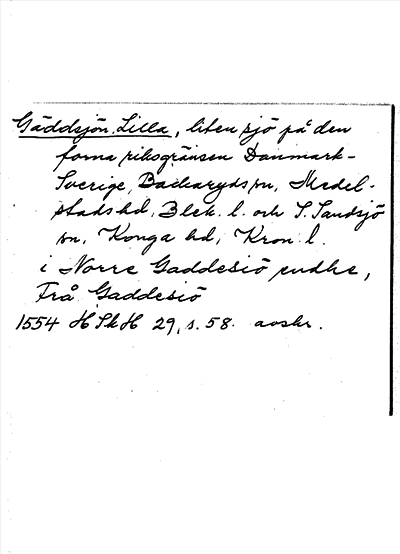 Gäddsjön, Lilla, liten sjö på den
forna riksgränsen Danmark-
Sverige, Backaryds sn, Medel-
stads hd, Blek. l. och S. Sandsjö
sn, Konga hd, Kron. l.
i Norre Gaddesiö endhe,
Frå Gaddesiö
1554 HSkH 29, s. 58. avskr.